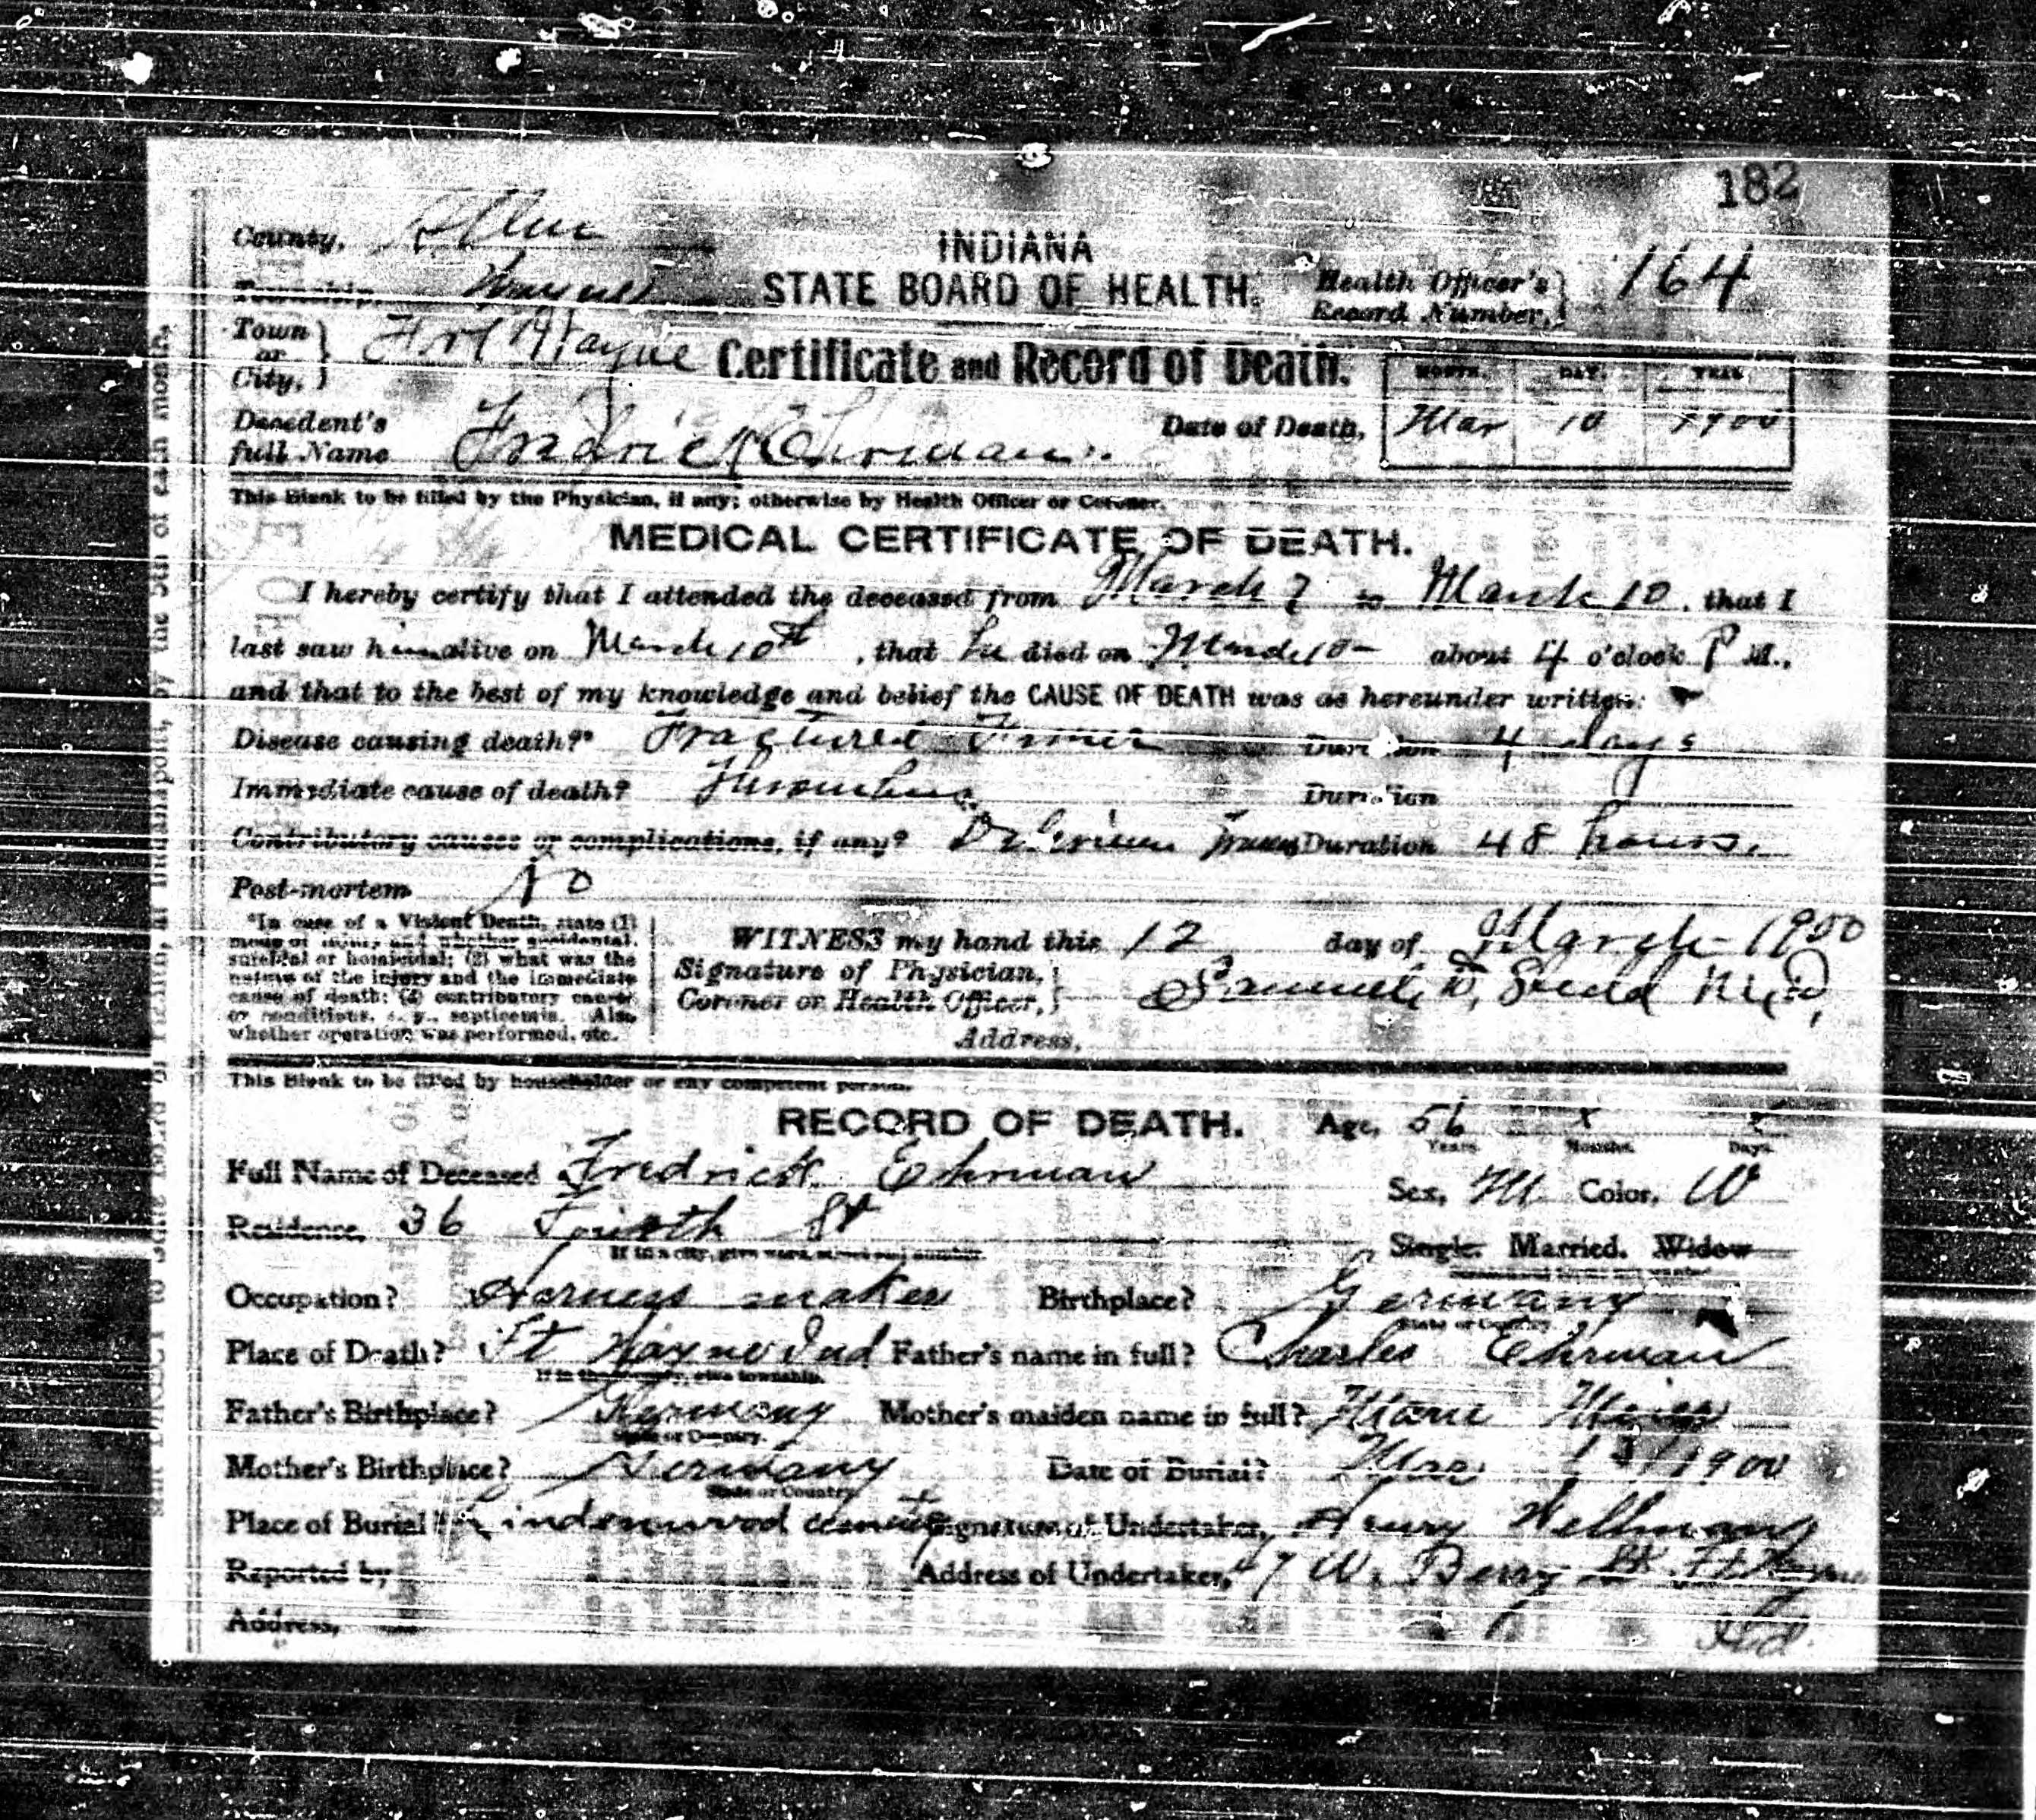 182
County, Allen
INDIANA
Township, Wayne
STATE BOARD OF HEALTH.
Health Officer's Record Number, 164
Town or City, Fort Wayne
Certificate and Record of Death.
MONTH. DAY. YEAR
Decedent's full Name Fredrick Ehrman.
Date of Death, Mar 10 1900
This Blank to be filled by the Physician, if any; otherwise by Health Officer or Coroner.
MEDICAL CERTIFICATE OF DEATH.
I hereby certify that I attended the deceased from March 7 to March 10, that I
last saw him alive on March 10th, that he died on March 10- about 4 o'clock P M.,
and that to the best of my knowledge and belief the CAUSE OF DEATH was as hereunder written:
Disease causing death?* Fractured Femur Duration 4 days
Immediate cause of death? Duration
Contributory causes or complications, if any? Delirium Duration 48 hours.
Post-mortem No
*In case of a Violent Death, state (1)
means of injury and whether accidental,
suicidal or homicidal; (2) what was the
nature of the injury and the immediate
cause of death; (3) contributory causes
or conditions, e. g., septicemia. Also
whether operation was performed, etc.
WITNESS my hand this 12 day of March 1900
Signature of Physician, Coroner or Health Officer, Samuel M.D.
Address,
This Blank to be filled by householder or any competent person.
RECORD OF DEATH. Age, 56 Years x Months. x Days.
Full Name of Deceased Fredrick Ehrman
Sex, M Color, W
Residence, 36 Fourth St
If in a city, give ward, street and number.
Single. Married. Widow
Occupation? Harness maker Birthplace? Germany
State or Country.
Place of Death? Ft Wayne Ind Father's name in full? Charles Ehrman
Father's Birthplace? Germany Mother's maiden name in full? Marie
State or Country.
Mother's Birthplace? Germany Date of Burial? Mar 13/1900
State or Country.
Place of Burial? Lindenwood cemetery Signature of Undertaker, Henry Wellman
Reported by Address of Undertaker, 47 W. Berry St. Ft Wayne
Address, Ind.